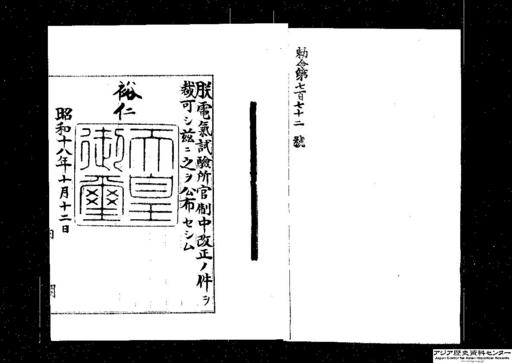 勅令第七百七十二號
朕電氣試驗所官制中改正ノ件ヲ
裁可シ茲ニ之ヲ公布セシム
裕仁
天皇
御璽
昭和十八年十月十二日
アジア歴史資料センター
Japan Center for Asian Historical Records